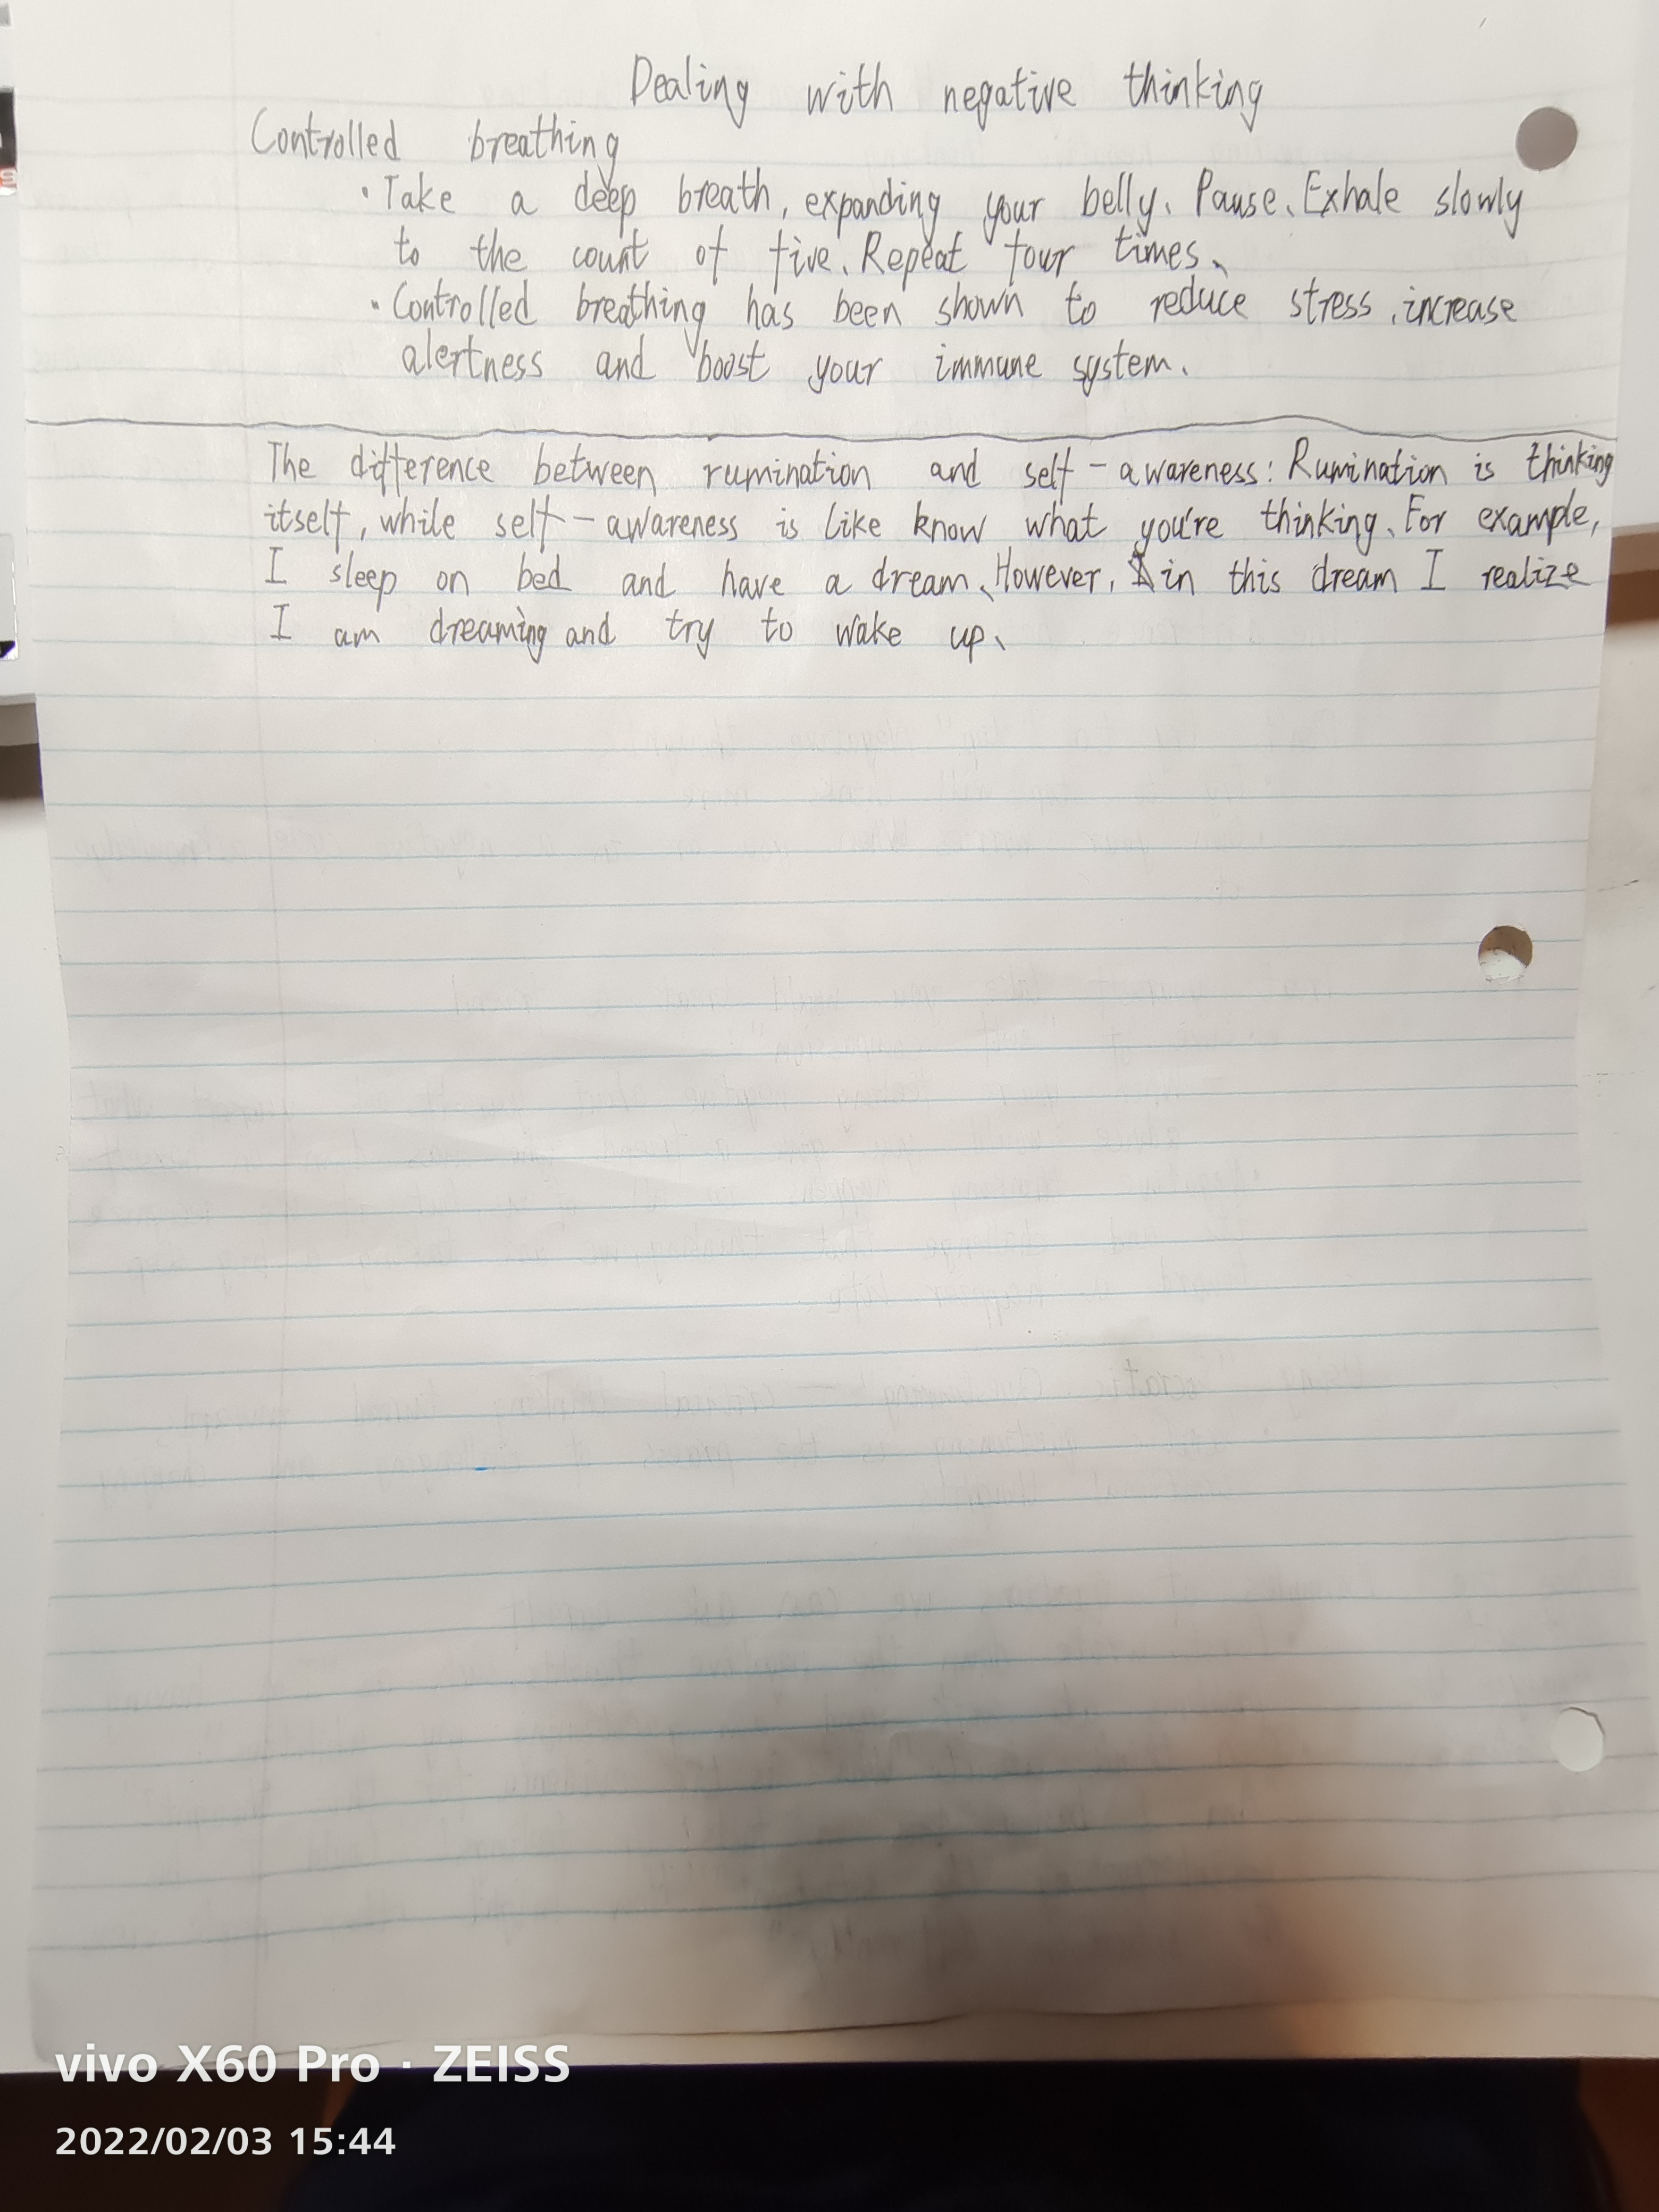 Dealing with negative thinking
Controlled breathing
· Take a deep breath, expanding your belly. Pause. Exhale slowly
to the count of five. Repeat four times.
· Controlled breathing has been shown to reduce stress, increase
alertness and boost your immune system.
The difference between rumination and self-awareness: Rumination is thinking
itself, while self-awareness is like know what you're thinking. For example,
I sleep on bed and have a dream. However, in this dream I realize
I am dreaming and try to wake up.
vivo X60 Pro · ZEISS
2022/02/03 15:44